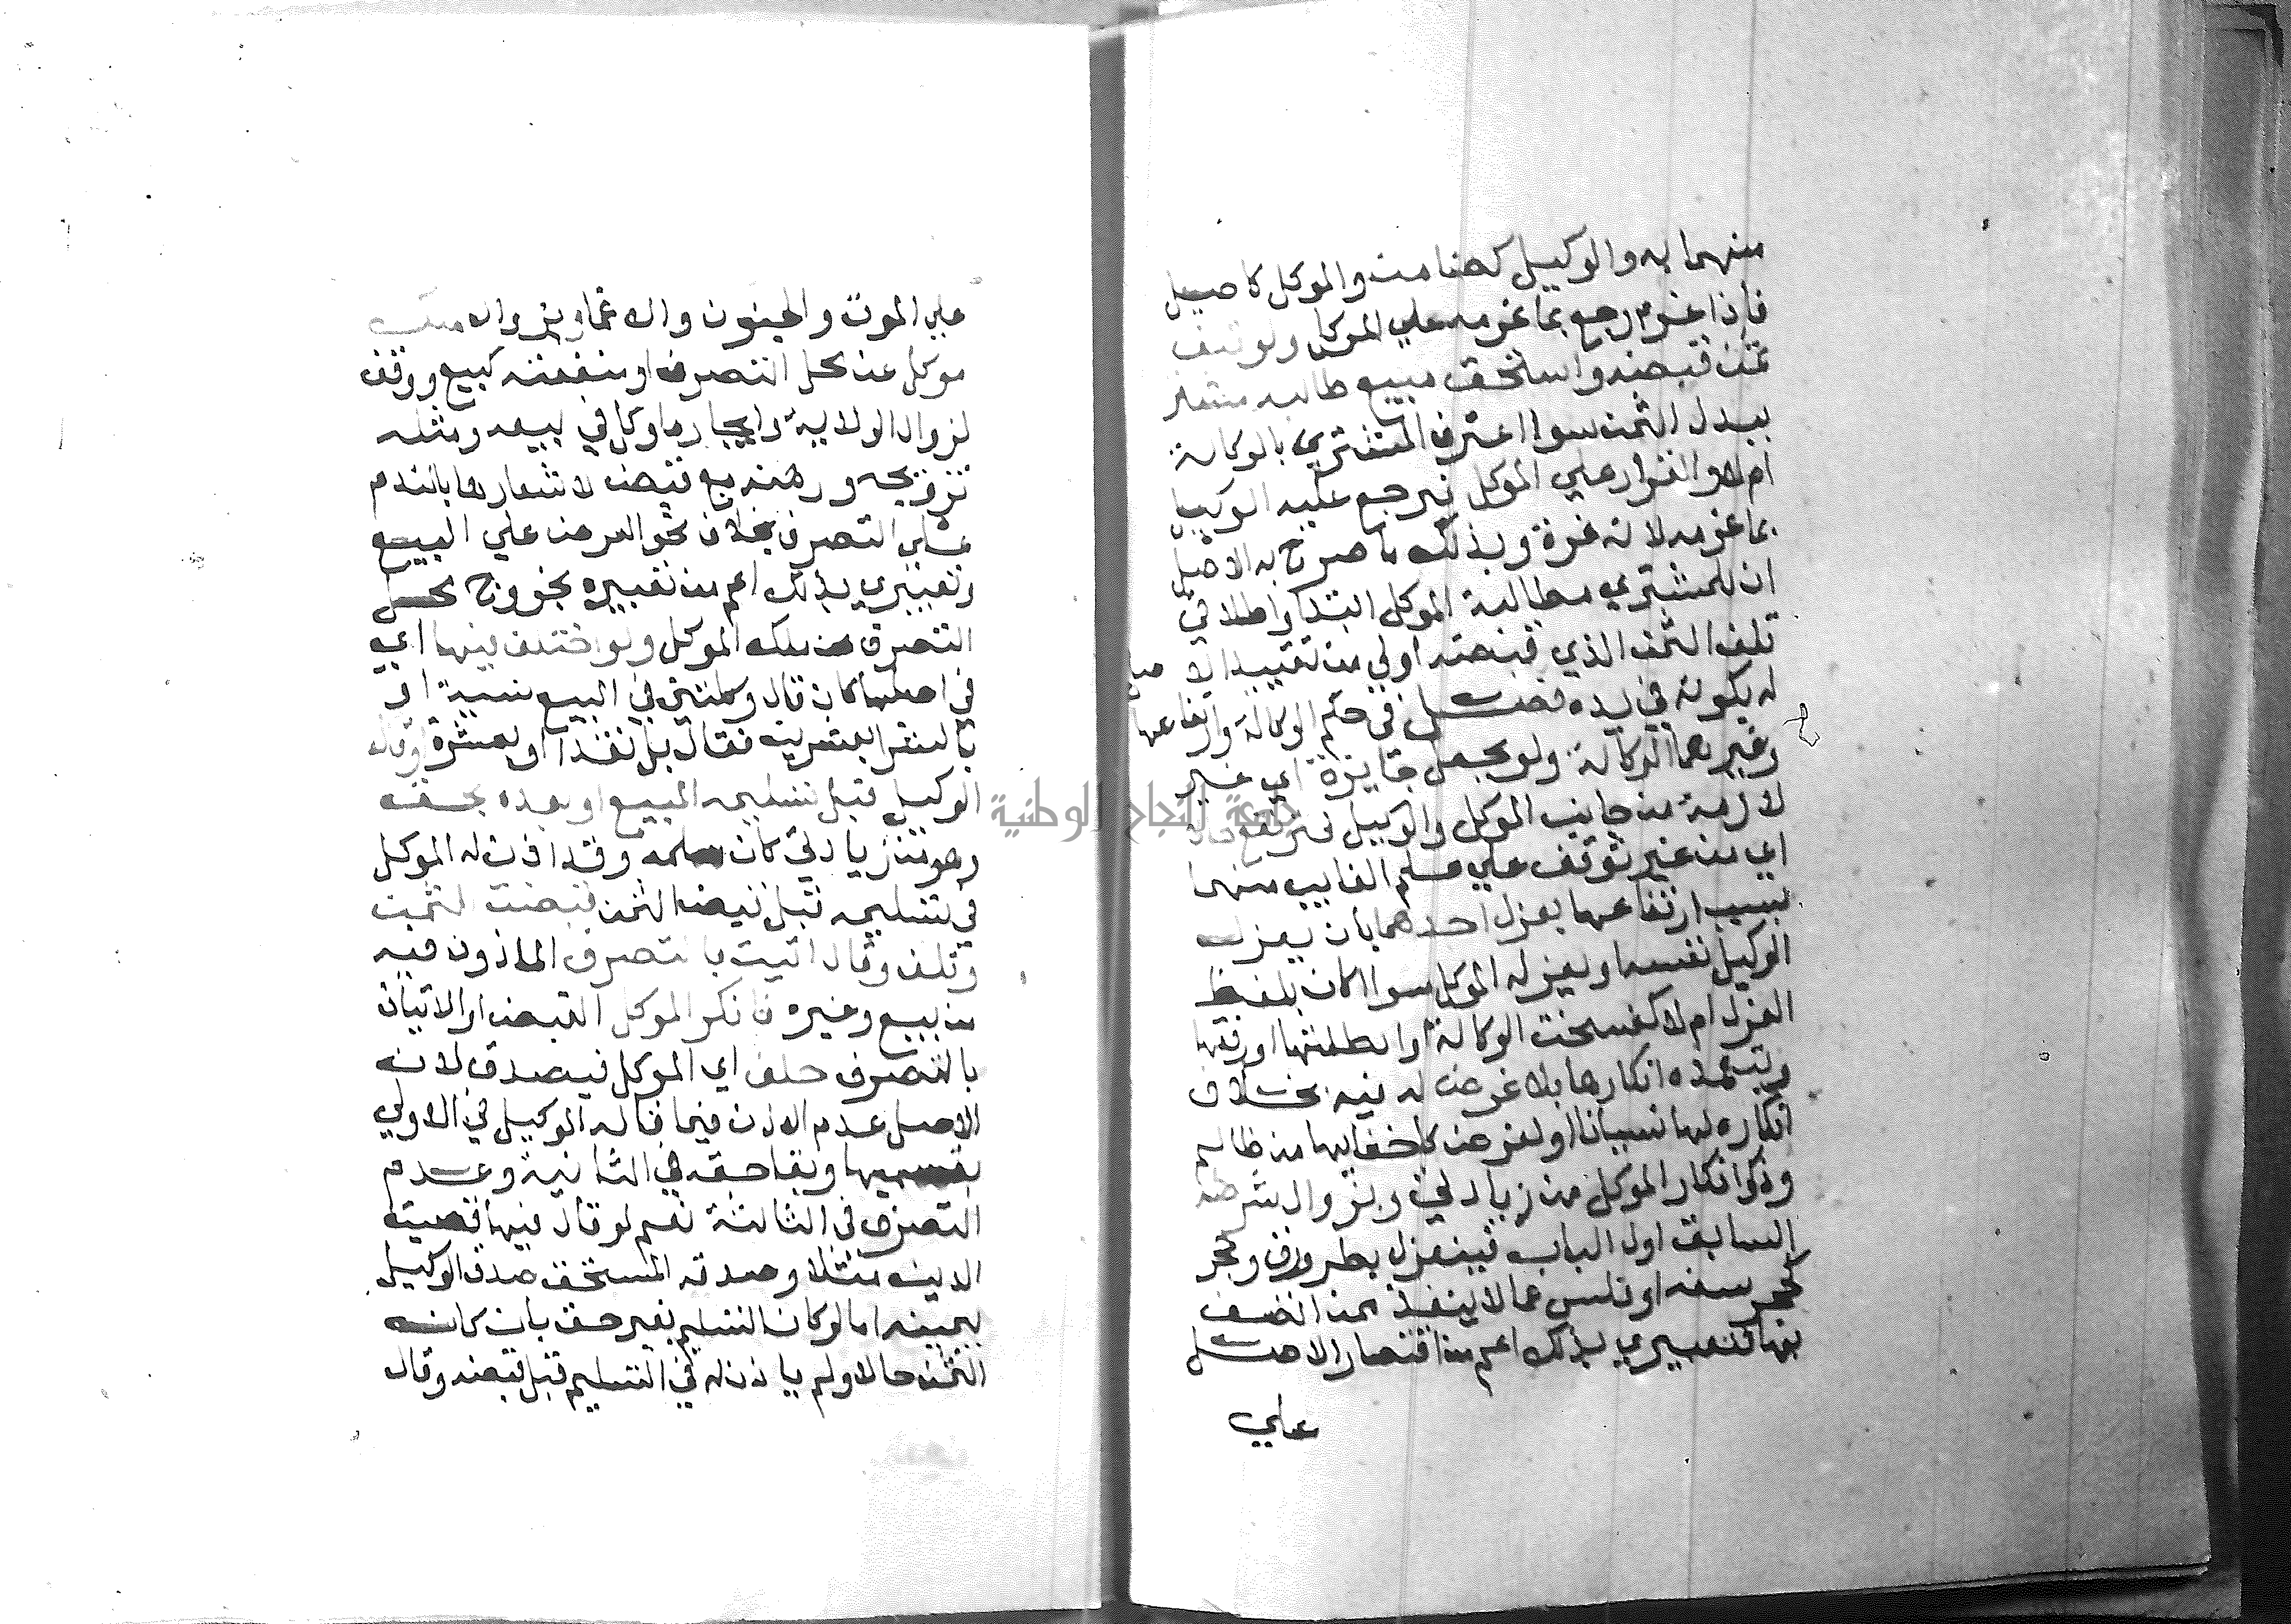 منهما به والوكيل كضامن والموكل كاصيل
فاذا غرم رجع بما غرمه علي الموكل ولو تلف
ثمن قبضه واستحق مبيع طالبه مشتر
ببدل الثمن سوا اعترف المشتري بالوكالة
ام لا والقرار علي الموكل فيرجع عليه الوكيل
بما غرمه لانه غره وبذلك ما صرح به الاصل
ان للمشتري مطالبة الموكل ابتدا واطلاقي
تلف الثمن الذي قبضته اولي من تقييد الاصل
له بكونه في يده فصل في حكم الوكالة وارتفاعها
وغيرهما الوكالة ولو بجعل جايزة اي غير
لازمة من جانب الموكل والوكيل فترتفع حالا
اي من غير توقف علي علم الغايب منهما
بسبب ارتفاعها بعزل احدهما بان يعزل
الوكيل نفسه او يعزله الموكل سوا اكان بلفظ
العزل ام لا كفسخت الوكالة او ابطلتها او رفعتها
وبتعمده انكارها بلا غرض له فيه بخلاف
انكاره لها نسيانا او لغرض كاخفايها من ظالم
وذكر انكار الموكل من زيادتي وبزوال شرطه
السابق اول الباب فينعزل بطرو رق وحجر
كحجر سفه او فلس عما لا ينفذ ممن اتصف
بهما فتعبيري بذلك اعم من اقتصار الاصل
علي
علي الموت والجنون والاغما وبزوال ملك
موكل عن محل التصرف او منفعته كبيع ووقف
لزوال الولاية وايجار ما وكل في بيعه ومثله
تزويجه ورهنه مع قبض لاشعارها بالندم
علي التصرف بخلاف نحو العرض علي البيع
وتعبيري بذلك اعم من تعبيره بخروج محل
التصرف عن ملك الموكل ولو اختلفا فيها اي
في اصلها كان قال وكلتني في البيع نسية او
بالشرا بعشرين فقال بل نقدا او بعشرة او قال
الوكيل قبل تسليمه المبيع او بعده بحق
وهو من زيادتي كان سلمه وقد اذن له الموكل
في تسليمه قبل قبض الثمن قبضت الثمن
وتلف وقال اتيت بالتصرف الماذون فيه
من بيع وغيره فانكر الموكل القبض او الاتيان
بالتصرف حلف اي الموكل فيصدق لانه
الاصل عدم الاذن فيما قاله الوكيل في الاولي
بقسميها وبقا حقه في الثانية وعدم
التصرف في الثالثة نعم لو قال فيها قضيت
الدين مثلا وصدقه المستحق صدق الوكيل
بيمينه اما لو كان التسليم بغير حق بان كان
الثمن حالا ولم ياذن له في التسليم قبل قبضه وقال
جامعة النجاح الوطنية